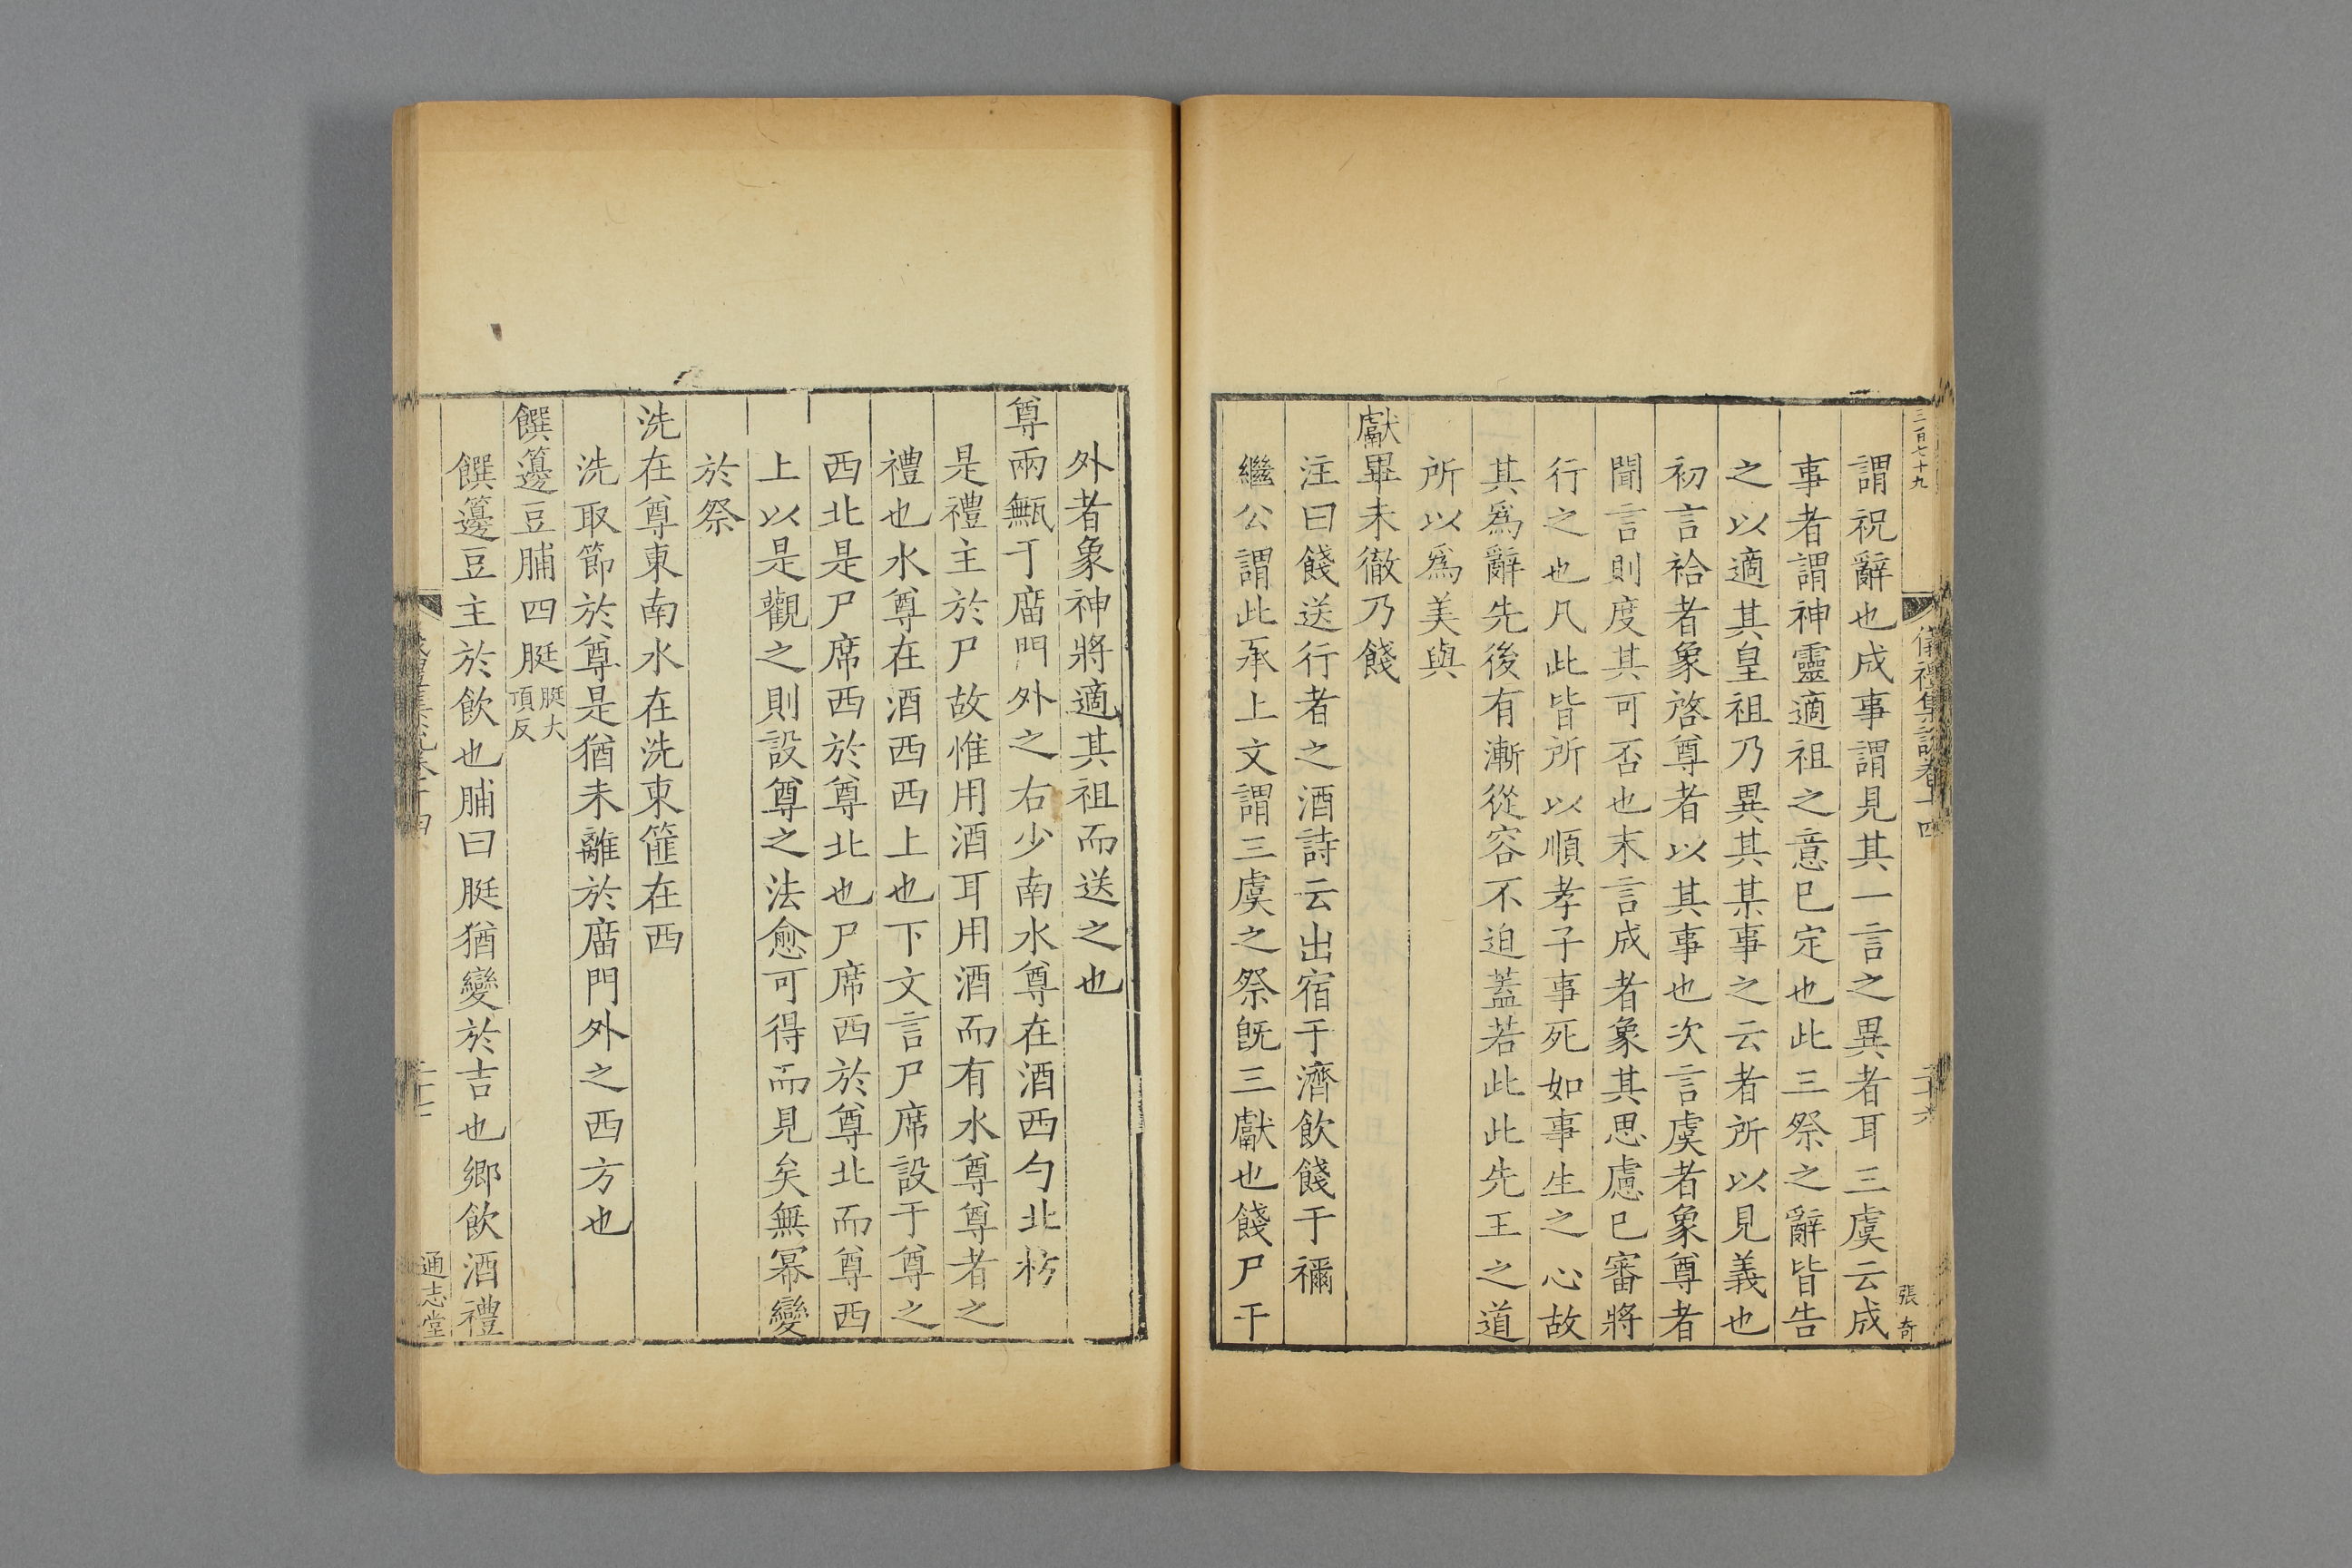 三百七十九
儀禮集說卷十四
張奇
謂祝辭也成事謂見其一言之異者耳三虞云成
事者謂神靈適祖之意已定也此三祭之辭皆告
之以適其皇祖乃異其某事之云者所以見義也
初言祫者象啓尊者以其事也次言虞者象尊者
聞言則度其可否也末言成者象其思慮已審將
行之也凡此皆所以順孝子事死如事生之心故
其爲辭先後有漸從容不迫蓋若此此先王之道
所以爲美與
獻畢未徹乃餞
注曰餞送行者之酒詩云出宿于濟飲餞于禰
繼公謂此承上文謂三虞之祭旣三獻也餞尸于
外者象神將適其祖而送之也
尊兩甒于廟門外之右少南水尊在酒西勺北枋
是禮主於尸故惟用酒耳用酒而有水尊尊者之
禮也水尊在酒西西上也下文言尸席設于尊之
西北是尸席西於尊北也尸席西於尊北而尊西
上以是觀之則設尊之法愈可得而見矣無冪變
於祭
洗在尊東南水在洗東篚在西
洗取節於尊是猶未離於廟門外之西方也
饌籩豆脯四脡脡大頂反
饌籩豆主於飲也脯曰脡猶變於吉也鄉飲酒禮
通志堂